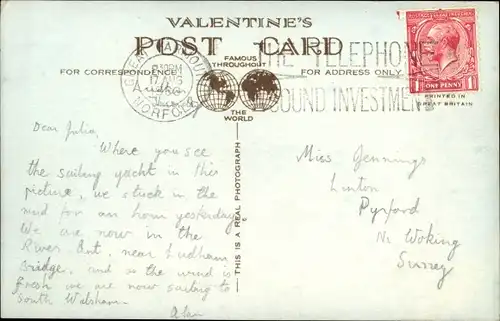 VALENTINE'S
POST CARD
FAMOUS
THROUGHOUT
THE
WORLD
FOR CORRESPONDENCE
FOR ADDRESS ONLY
GREAT YARMOUTH
NORFOLK
THE TELEPHONE
SOUND INVESTMENT
ONE PENNY
PRINTED IN
GREAT BRITAIN
THIS IS A REAL PHOTOGRAPH
Dear Julia,
Where you see
the sailing yacht in this
picture, we stuck in the
mud for an hour yesterday.
We are now in the
River Ant, near Ludham
Bridge, and so the wind is
fresh we are now sailing to
South Walsham.
Alan
Miss Jennings
Linton
Pyrford
Nr Woking
Surrey